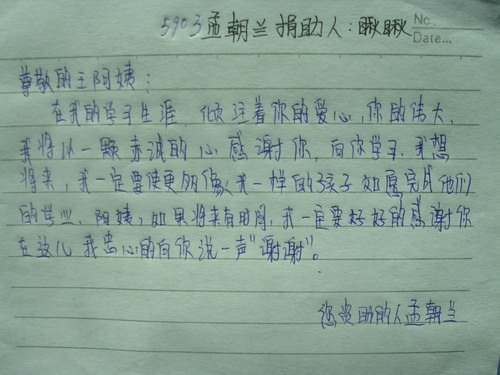 5903 孟朝兰 捐助人：瞅瞅 No.
Date...
尊敬的王阿姨：
在我的学习生涯，倾注着你的爱心，你的伟大，
我将以一颗赤诚的心感谢你，向你学习，我想
将来，我一定要使更多像我一样的孩子如愿完成他们
的学业，阿姨，如果将来有时间，我一定要好好的感谢你
在这儿我忠心的向你说一声"谢谢"。
您资助的人孟朝兰